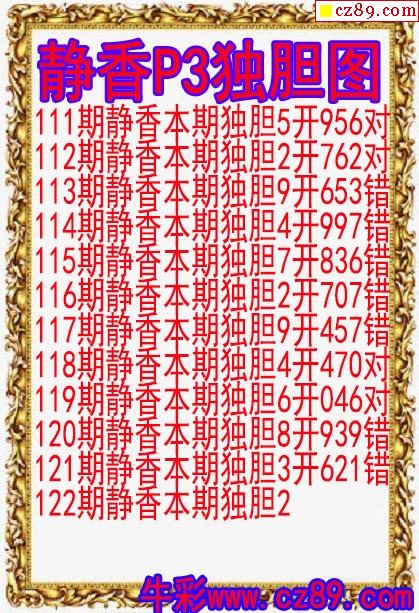 cz89.com
静香P3独胆图
111期静香本期独胆5开956对
112期静香本期独胆2开762对
113期静香本期独胆9开653错
114期静香本期独胆4开997错
115期静香本期独胆7开836错
116期静香本期独胆2开707错
117期静香本期独胆9开457错
118期静香本期独胆4开470对
119期静香本期独胆6开046对
120期静香本期独胆8开939错
121期静香本期独胆3开621错
122期静香本期独胆2
牛彩www.cz89.com